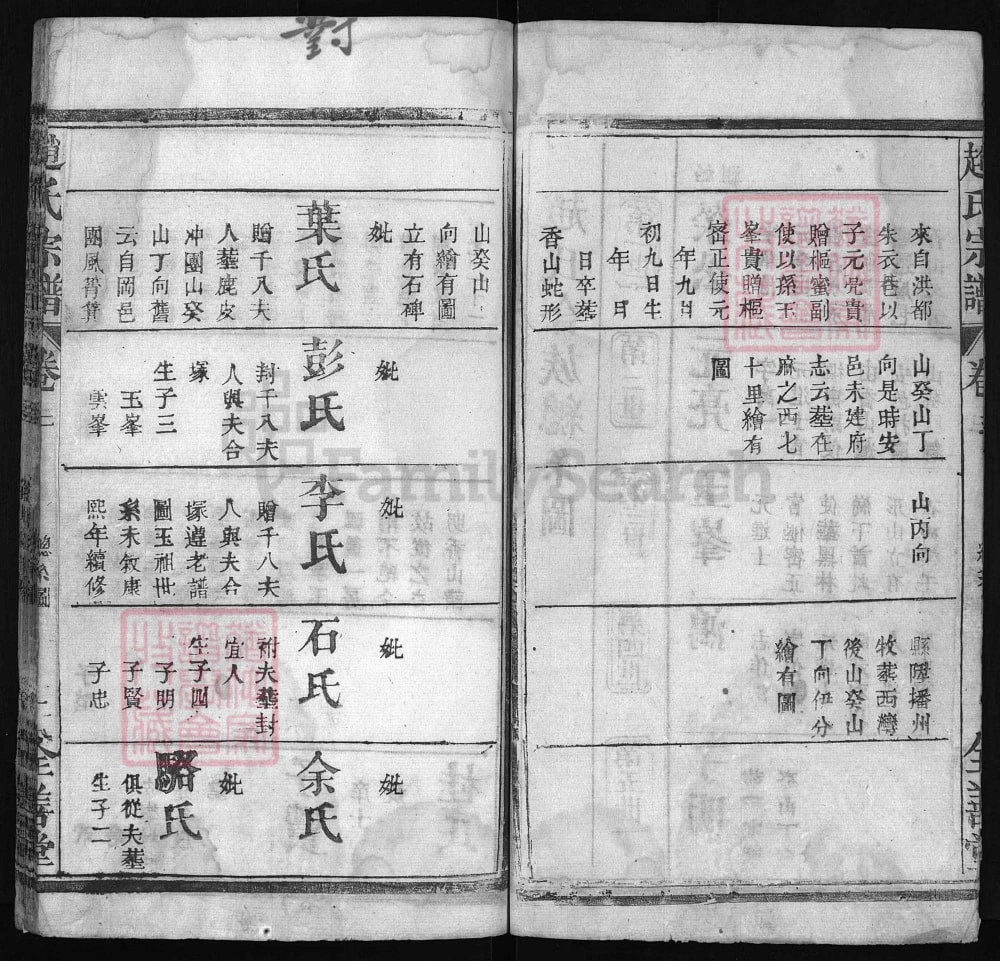 對
趙氏宗譜
卷
來自洪都
朱衣巷以
子元亮貴
贈樞密副
使以孫玉
峯貴贈樞
密正使元
年九月
初九日生
年 月
日卒墓
香山蛇形
山癸山丁
向是時安
邑未建府
志云墓在
麻之西七
十里繪有
圖
山內向
縣陞播州
牧葬西灣
後山癸山
丁向伊分
繪有圖
全善堂
山癸山
向繪有圖
立有石碑
妣
葉氏
贈千八夫
人墓鹿皮
冲團山癸
山丁向舊
云自岡邑
團風脊貲
妣
彭氏
封千八夫
人與夫合
塚
生子三
玉峯
雲峯
妣
李氏
贈千八夫
人與夫合
塚遵老譜
圖玉祖世
系未敘康
熙年續修
妣
石氏
祔夫墓封
宜人
生子四
子明
子賢
子忠
妣
余氏
妣
駱氏
俱從夫墓
生子二
趙氏宗譜
卷
總系圖
全善堂
FamilySearch